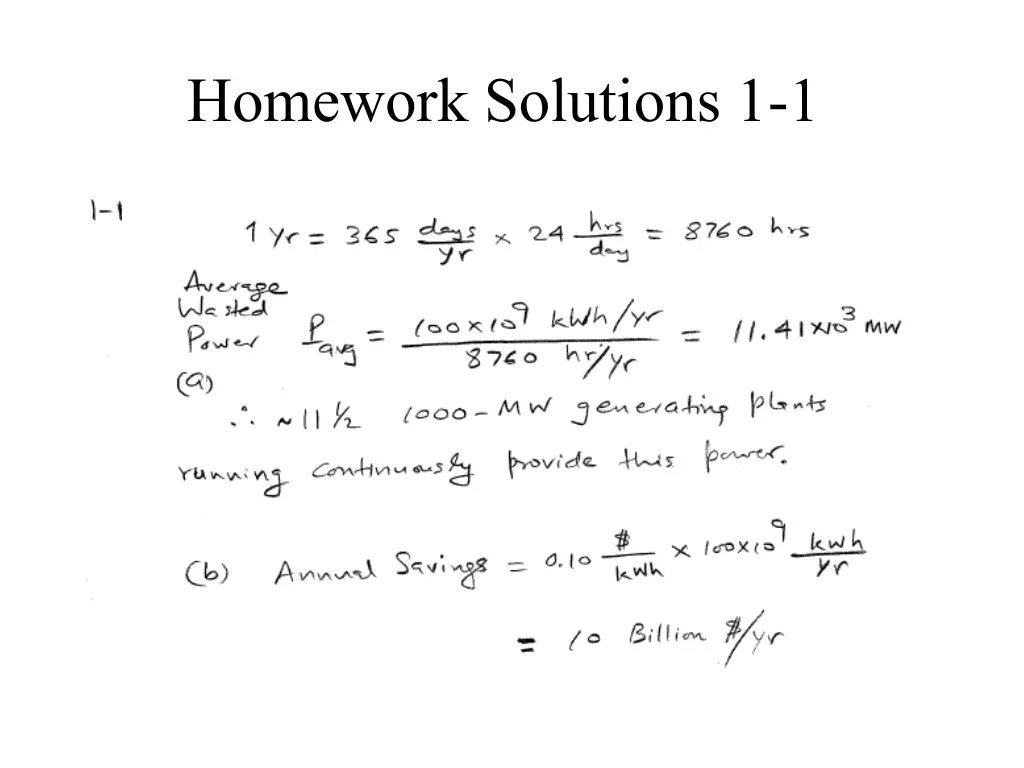 Homework Solutions 1-1
1-1
1 Yr = 365 days/yr × 24 hrs/day = 8760 hrs
Average
Wasted
Power P_avg = 100×10⁹ kWh/yr / 8760 hr/yr = 11.41×10³ MW
(a)
∴ ~11 ½ 1000-MW generating plants
running continuously provide this power.
(b) Annual Savings = 0.10 $/kWh × 100×10⁹ kWh/yr
= 10 Billion $/yr